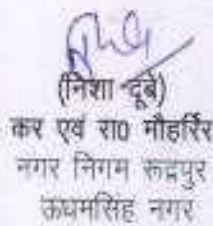 (निशा दूबे)
कर एवं रा0 मौहर्रिर
नगर निगम रूद्रपुर
ऊधमसिंह नगर